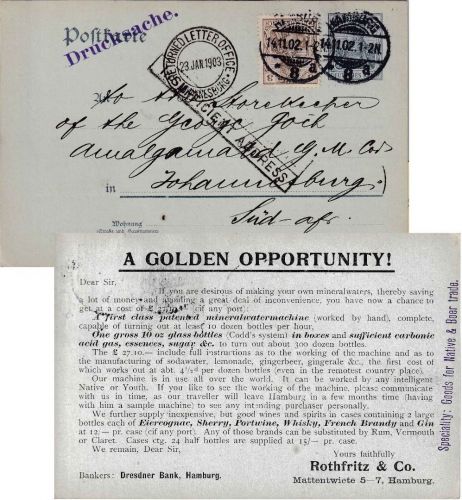 Postkarte
Drucksache.
HAMBURG
14.11.02. 1-2N.
* 8 a
HAMBURG
14.11.02. 1-2N.
* 8 a
RETURNED LETTER OFFICE
23 JAN 1903
JOHANNESBURG
INSUFFICIENT ADDRESS
To the Storekeeper
of the George Goch
Amalgamated G. M. Co
in Johannesburg.
Wohnung
(Straße und Hausnummer)
Süd-afr.
A GOLDEN OPPORTUNITY!
Dear Sir,
If you are desirous of making your own mineralwaters, thereby saving
a lot of money and avoiding a great deal of inconvenience, you have now a chance to
get at a cost of (cif any port):
A first class patented mineralwatermachine (worked by hand), complete,
capable of turning out at least 10 dozen bottles per hour,
One gross 10 oz glass bottles (Codd's system) in boxes and sufficient carbonic
acid gas, essences, sugar &c. to turn out about 300 dozen bottles.
The £ 27.10.— include full instructions as to the working of the machine and as to
the manufacturing of sodawater, lemonade, gingerbeer, gingerale &c., the first cost of
which works out at abt. 4½d per dozen bottles (even in the remotest country place).
Our machine is in use all over the world. It can be worked by any intelligent
Native or Youth. If you like to see the working of the machine, please communicate
with us in time, as our traveller will leave Hamburg in a few months time (having
with him a sample machine) to see any intending purchaser personally.
We further supply inexpensive, but good wines and spirits in cases containing 2 large
bottles each of Eiercognac, Sherry, Portwine, Whisky, French Brandy and Gin
at 12.— pr. case (cif any port). Any of those brands can be substituted by Rum, Vermouth
or Claret. Cases ctg. 24 half bottles are supplied at 15/— pr. case.
We remain, Dear Sir,
Yours faithfully
Rothfritz & Co.
Bankers: Dresdner Bank, Hamburg.
Mattentwiete 5–7, Hamburg.
Speciality: Goods for Native & Boer trade.